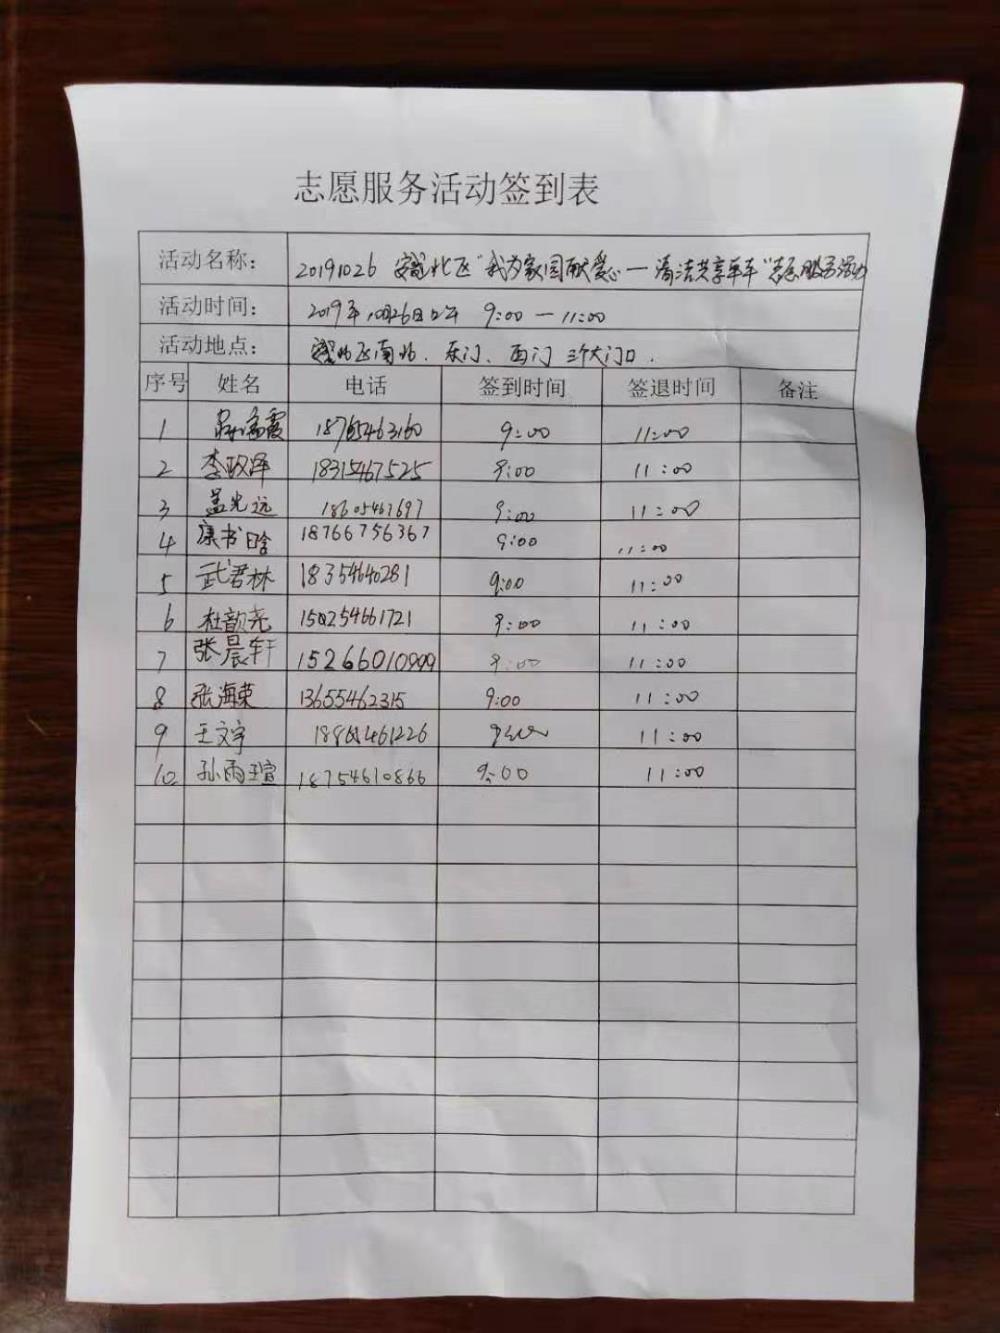 志愿服务活动签到表
活动名称： 20191026 北区"我为家园献爱心—清洁共享单车"志愿服务活动
活动时间： 2019年10月26日上午 9:00—11:00
活动地点： 北区南北、东门、西门三个大门口.
序号 姓名 电话 签到时间 签退时间 备注
1 霞 18765463160 9:00 11:00
2 李政泽 18315467525 9:00 11:00
3 孟光远 18605467697 9:00 11:00
4 康书晗 18766756367 9:00 11:00
5 武君林 18354640281 9:00 11:00
6 杜韵尧 150254661721 9:00 11:00
7 张晨轩 15266010999 9:00 11:00
8 张海荣 13655462315 9:00 11:00
9 王文宇 9:00 11:00
10 孙雨瑄 18754610866 9:00 11:00